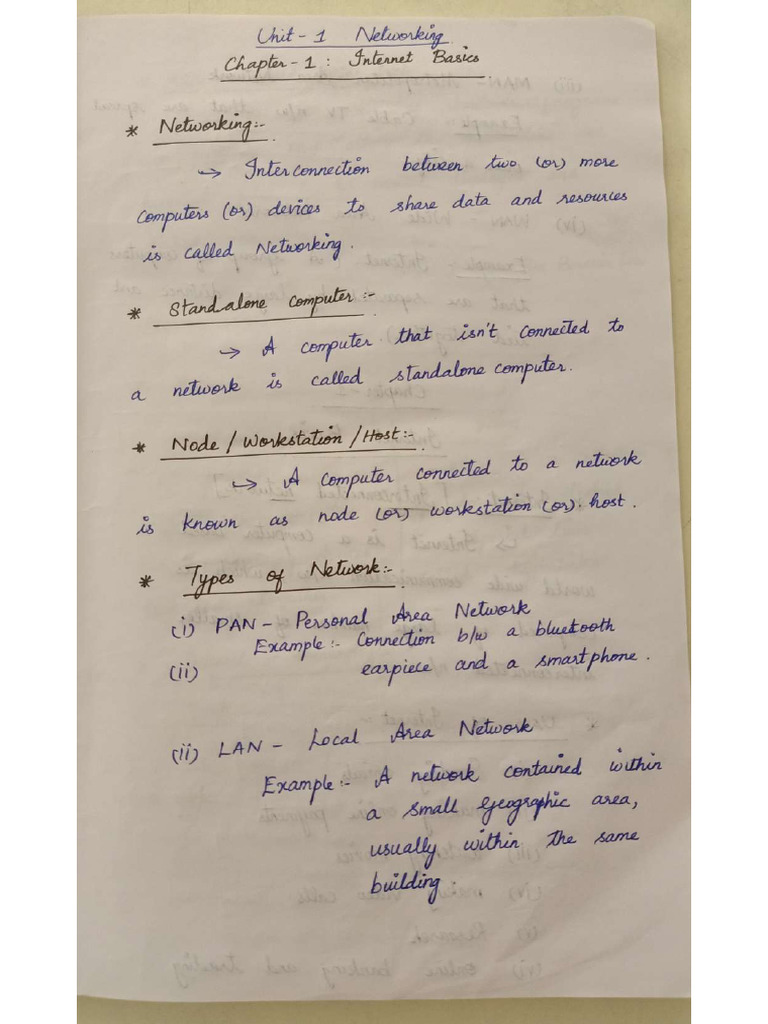 Unit - 1 Networking
Chapter - 1 : Internet Basics
* Networking:-
→ Interconnection between two (or) more
computers (or) devices to share data and resources
is called Networking.
* Standalone computer:-
→ A computer that isn't connected to
a network is called standalone computer.
* Node / Workstation / Host:-
→ A computer connected to a network
is known as node (or) workstation (or) host.
* Types of Network:-
(i) PAN - Personal Area Network
Example:- Connection b/w a bluetooth
(ii) earpiece and a smartphone.
(ii) LAN - Local Area Network
Example:- A network contained within
a small geographic area,
usually within the same
building.